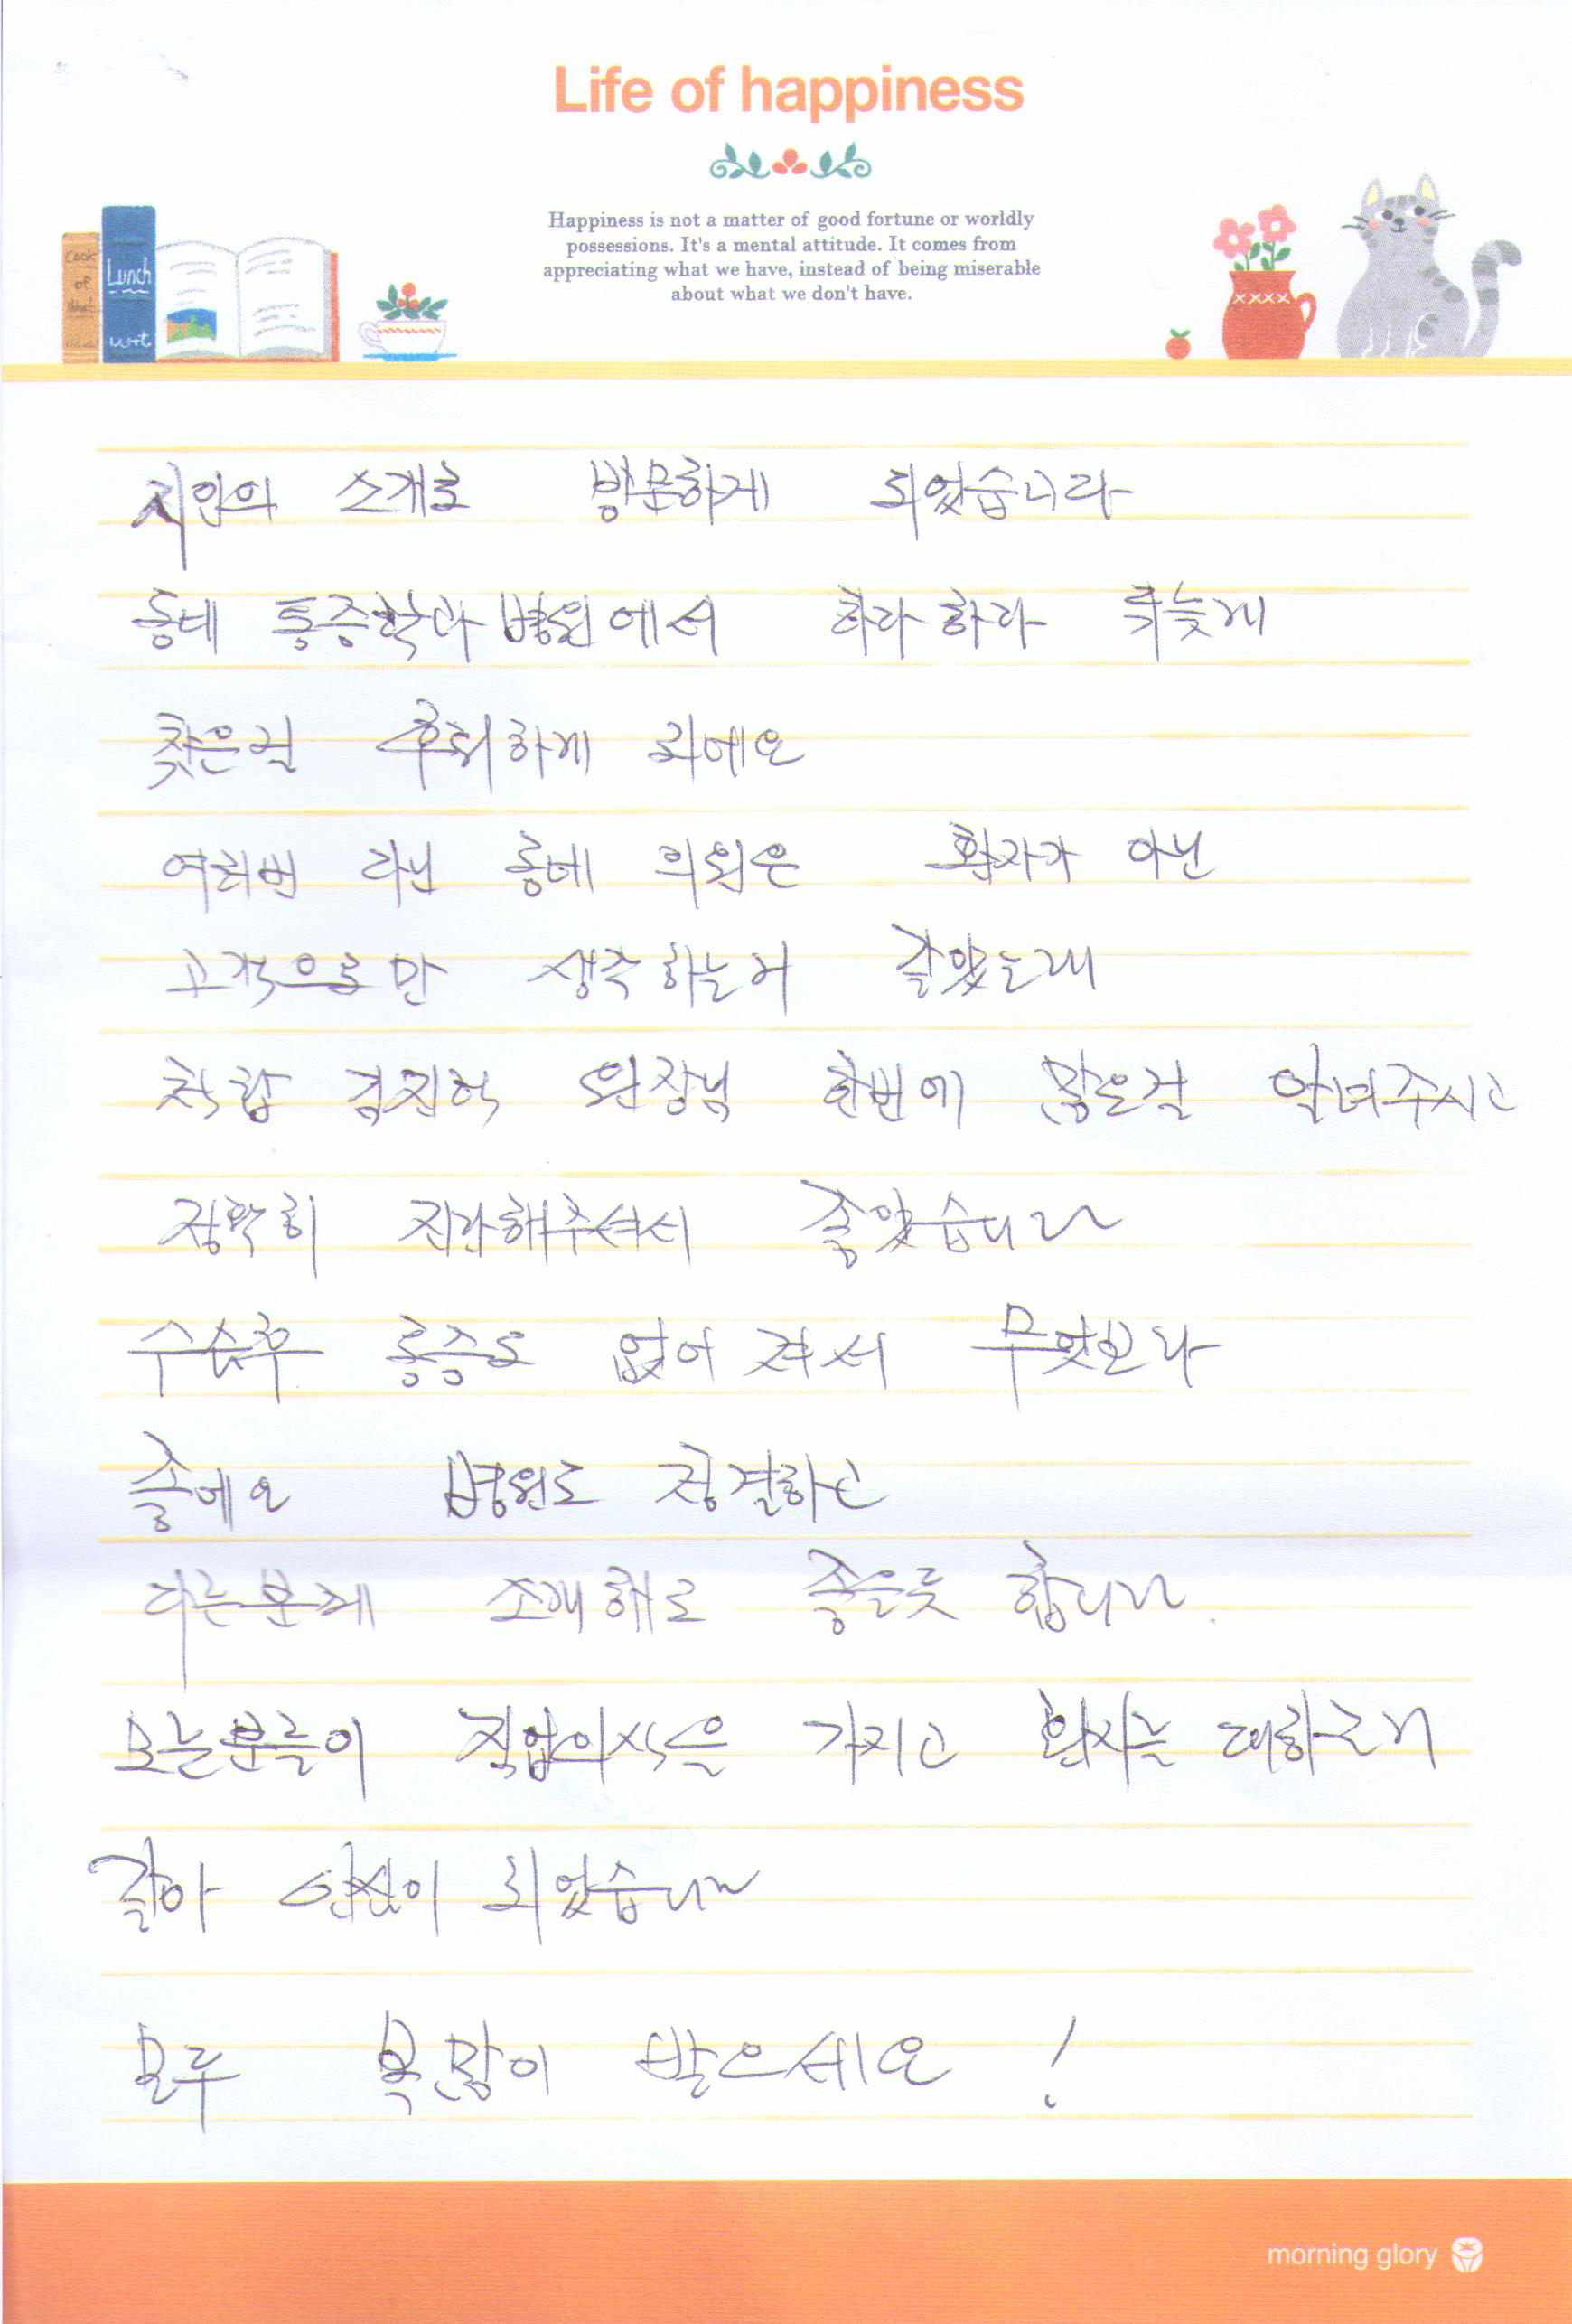 Life of happiness
Happiness is not a matter of good fortune or worldly
possessions. It's a mental attitude. It comes from
appreciating what we have, instead of being miserable
about what we don't have.
Cook
of
Lunch
지인의 소개로 방문하게 되었습니다
동네 통증학과 병원에서 하다하다 뒤늦게
찾은걸 후회하게 되에요
여러번 다닌 동네 의원은 환자가 아닌
고객으로만 생각하는거 같았는데
척탑 김진혁 원장님 한번에 많은걸 알려주시고
정확히 진단해주셔서 좋았습니다
수술후 통증도 없어져서 무엇보다
좋에요 병원도 청결하고
다른분께 소개해도 좋을듯 합니다.
모는분들이 직업의식을 가지고 환자는 대하는거
같아 안심이 되었습니다
모두 복많이 받으세요 !
morning glory